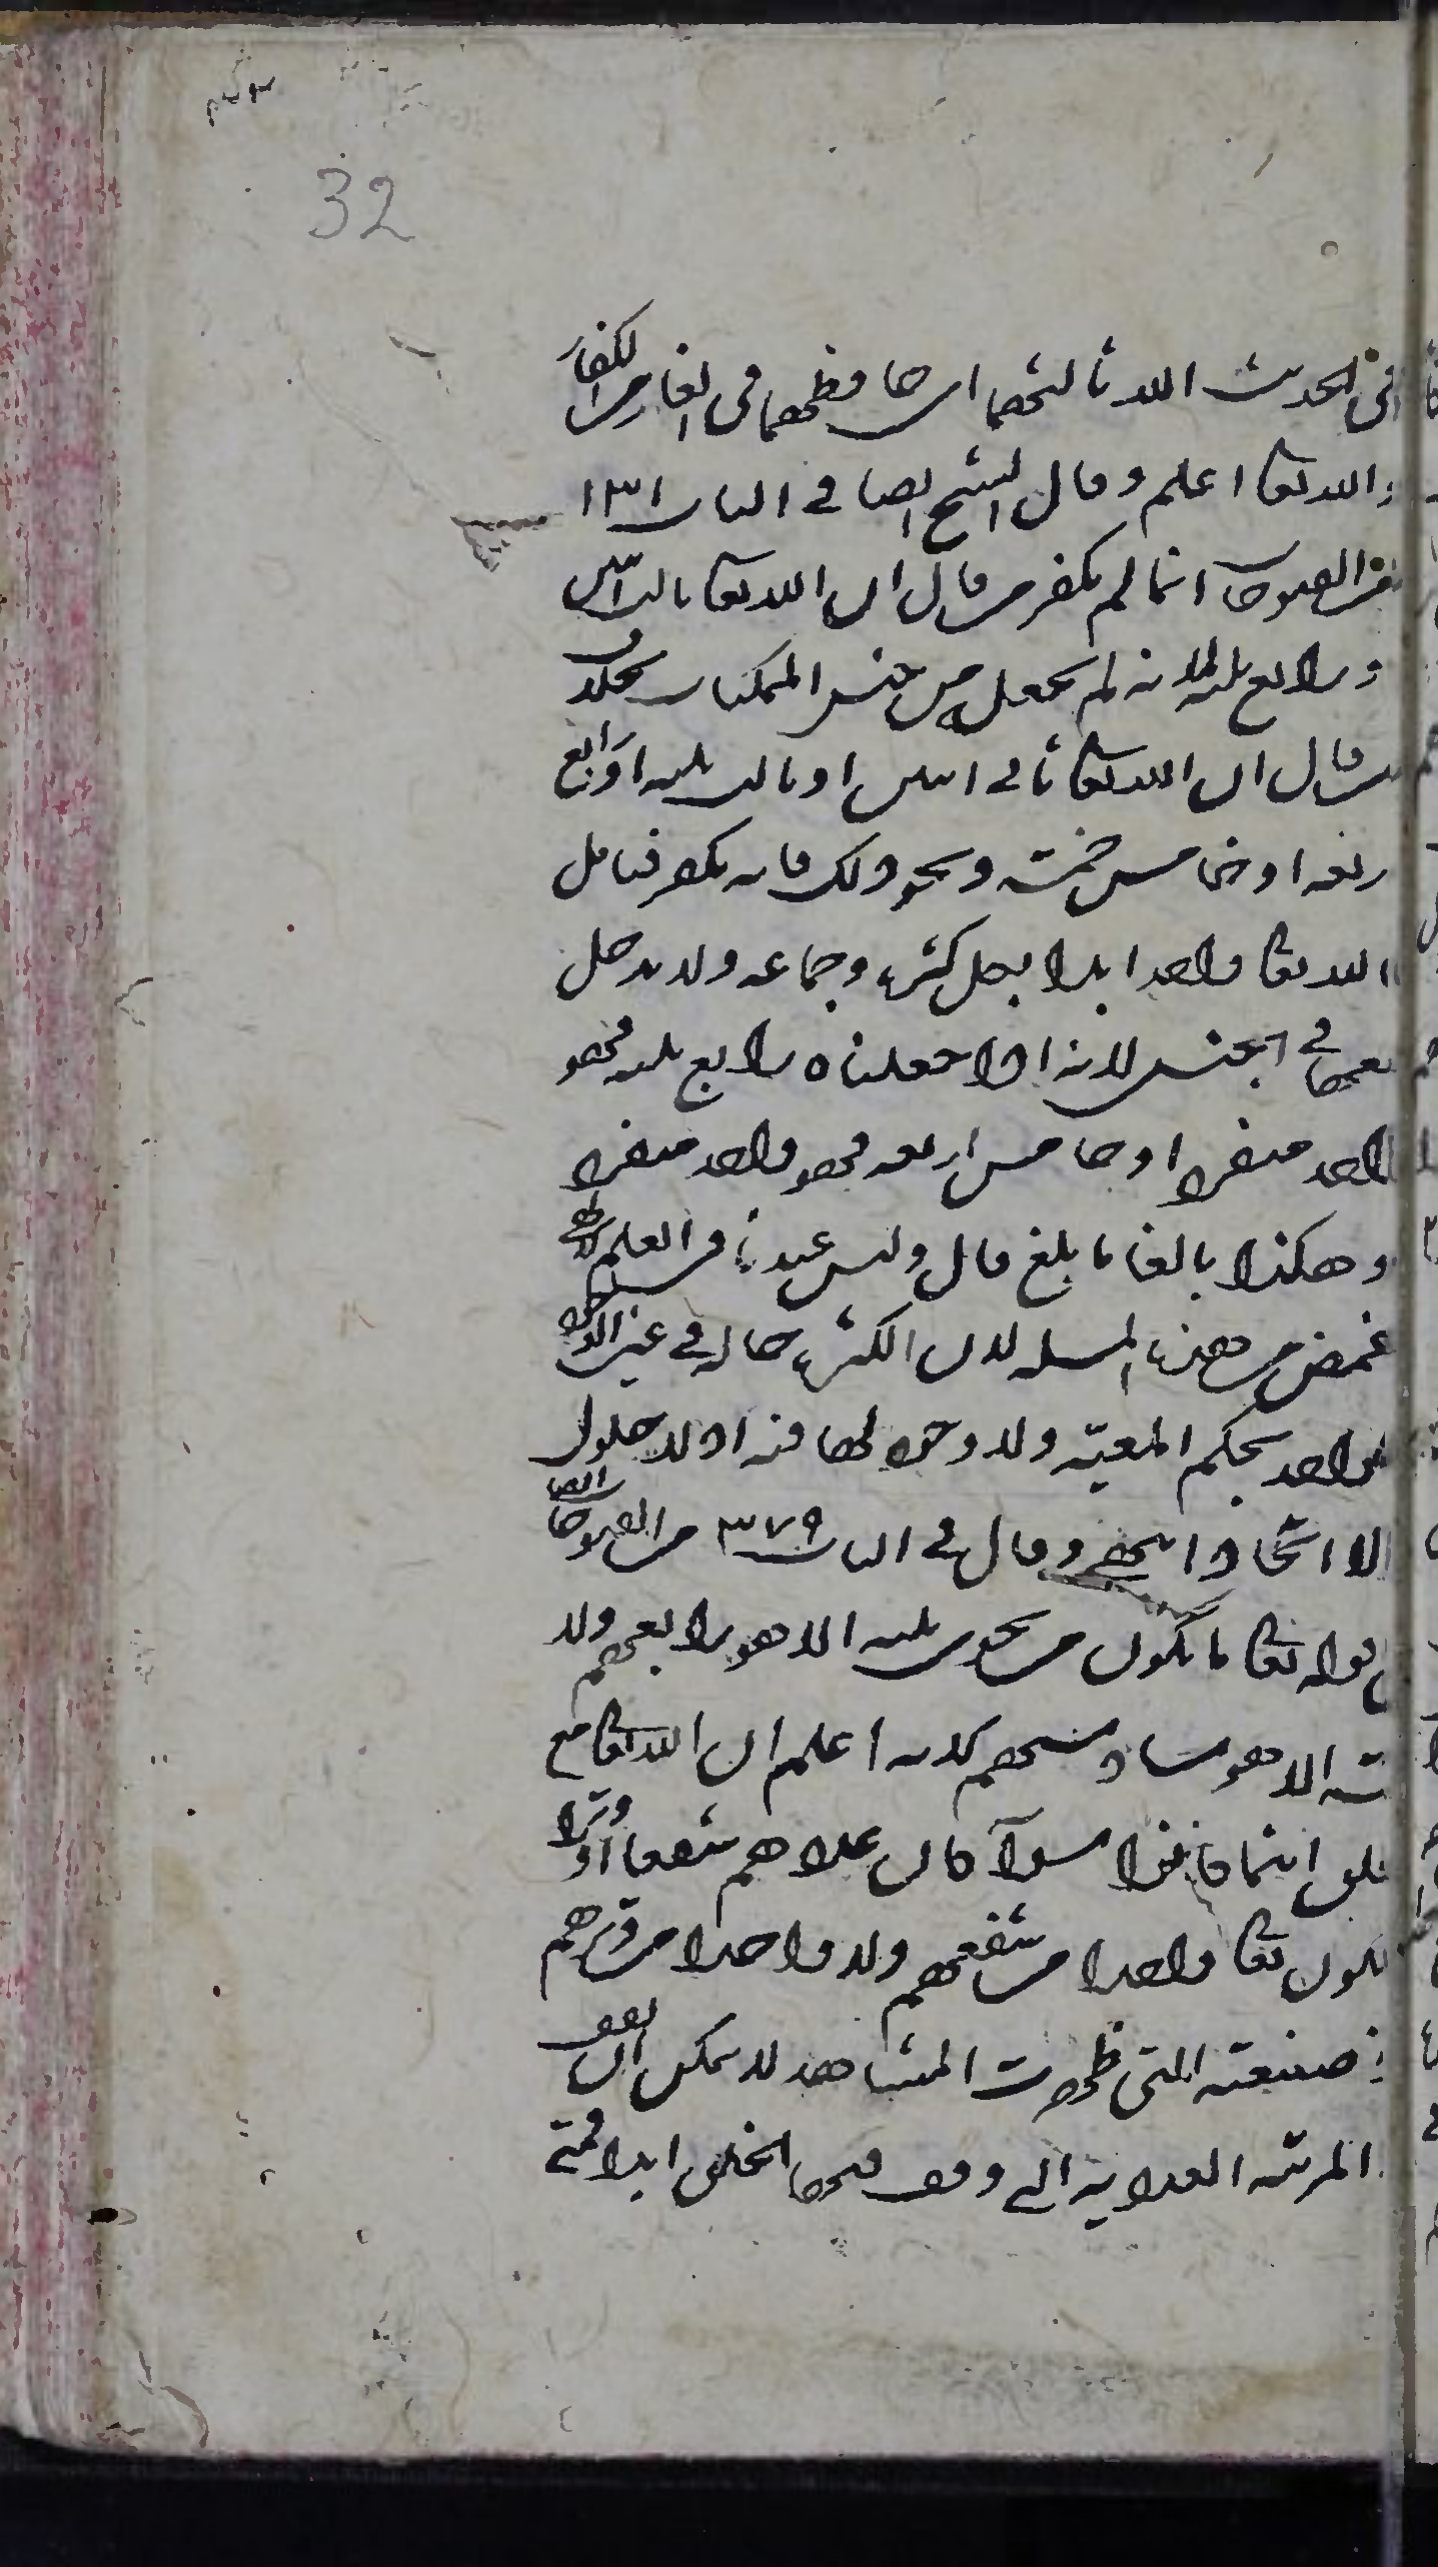 32
في الحديث الله ثالثهما اي حافظهما في الغار من الكفار
والله تعا اعلم وقال الشيخ ايضا في الباب ١٣١
من الفتوحات انما لم يكفر من قال ان الله تعا ثالث اثنين
ورابع ثلثة لانه لم يجعله من جنس الممكنات بخلاف
من قال ان الله تعا ثاني اثنين او ثالث ثلثه او رابع
اربعه او خامس خمسة ونحو ذلك فانه يكفر فتامل
الله تعا واحد ابدا لكل كثرة وجماعه ولا يدخل
معها في الجنس لانه اذا جعلناه رابع ثلثه فهو
واحد منفرد او خامس اربعه فهو واحد منفرد
وهكذا بالغا ما بلغ قال وليس عندنا في العلم الالهي
اغمض من هذه المسئله لان الكثرة حاله في عين الوجود
الواحد بحكم المعيّه ولا وجود لها فيه اذ لا حلول
ولا اتحاد انتهى وقال في الباب ٣٧٩ من الفتوحات ايضا
في قوله تعا ما يكون من نجوى ثلثه الا هو رابعهم ولا
خمسة الا هو سادسهم الايه اعلم ان الله تعا مع
الخلق اينما كانوا سواء كان عددهم شفعا او وترا
لا يكون تعا واحدا من شفعهم ولا واحدا من وترهم
صنيعته التي ظهرت المشاهد لا يمكن ان يقف
المرتبه العدديه التي وقف فيها الخلق ابدا فمتى